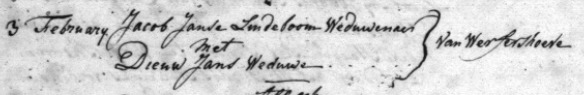 3 February Jacob Janse Lindeboom Weduwenaer
met
Dieuw Jans Weduwe
Van Wer fershoeve